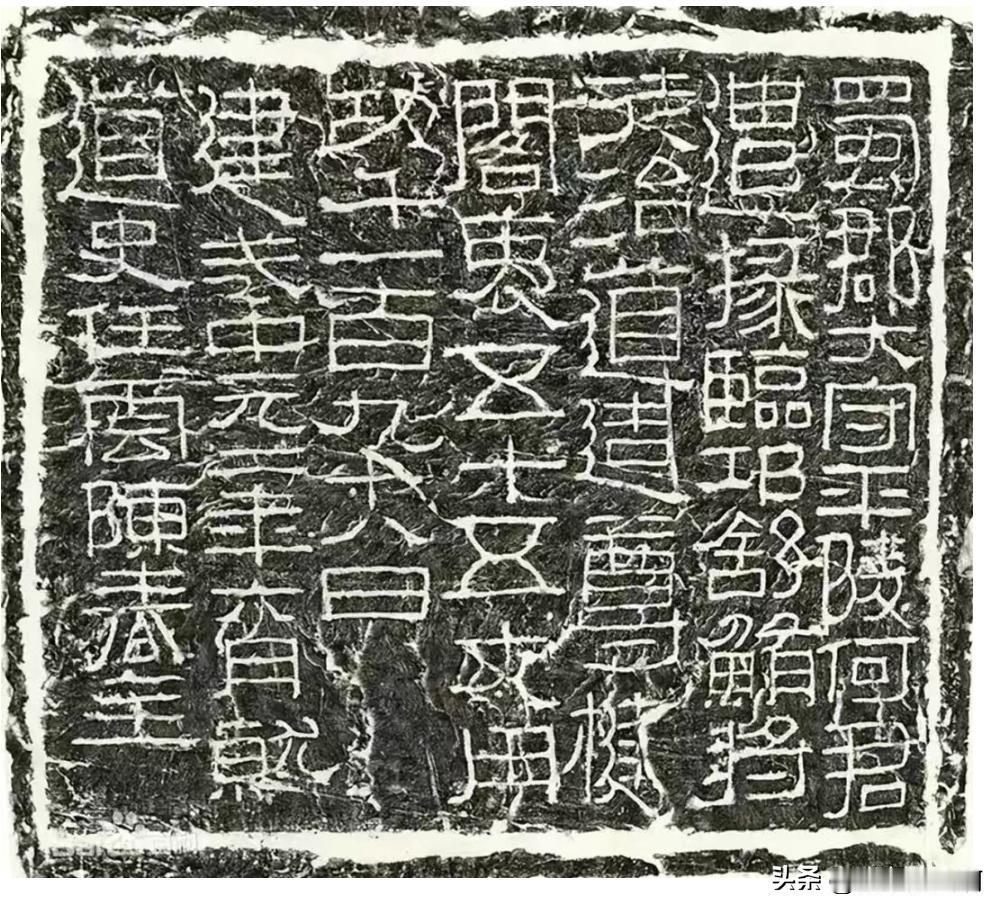 蜀郡大守平陵何君
遣掾臨邛舒鮪將
徒治道造尊楗
閣袤五十五丈用
功千一百九十八日
建武中元二年六月就
道史任雲陳春主
头条